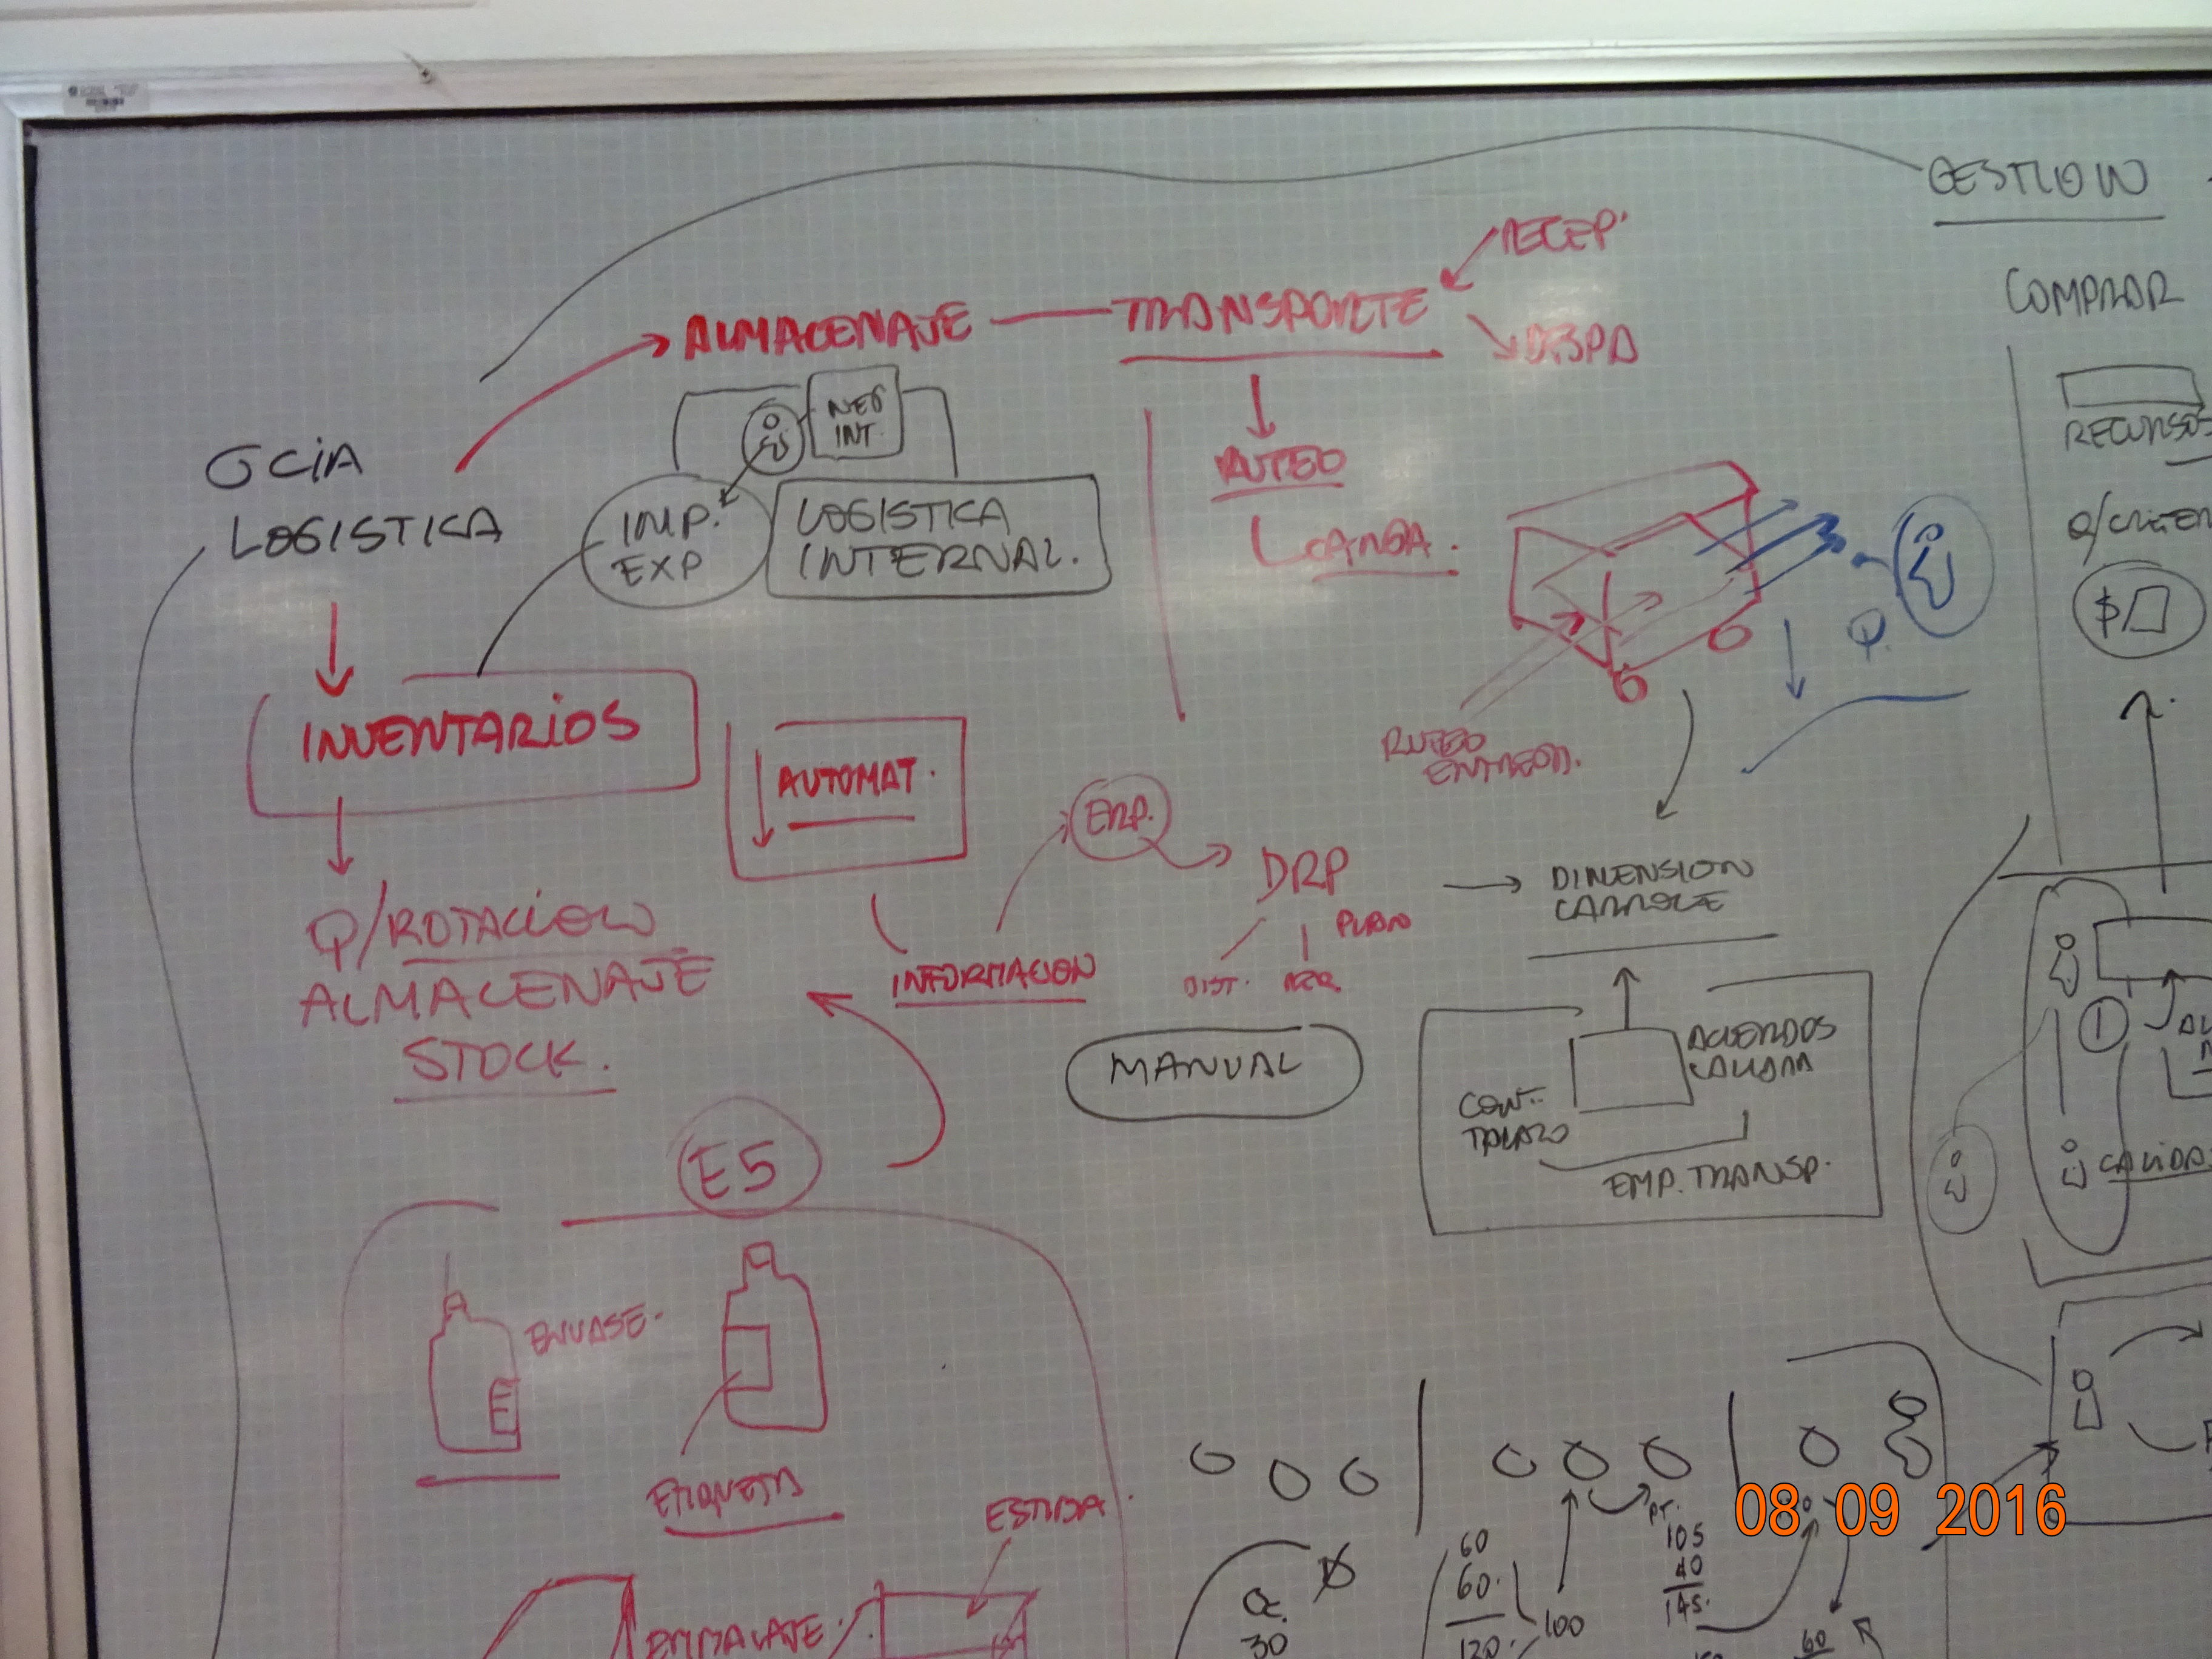 GESTION
RECEP.
COMPRAR
ALMACENAJE
TRANSPORTE
DESPA
NEG
INT.
RECURSOS
GCIA
LOGISTICA
RUTEO
IMP.
EXP
LOGISTICA
INTERNAL.
CARGA.
Q.
$
INVENTARIOS
AUTOMAT.
RUTEO
ENTREGA.
ERP.
DRP
DIMENSION
PLAN
Q/ROTACION
ALMACENAJE
STOCK.
INFORMACION
DIST.
MANUAL
ACUERDOS
CON-
TRATO
EMP. TRANSP.
1
E5
ENVASE.
ETIQUETA
ESTIBA.
PT.
08 09 2016
60
60.
120.
100
105
40
145.
30
60
EMBALAJE.